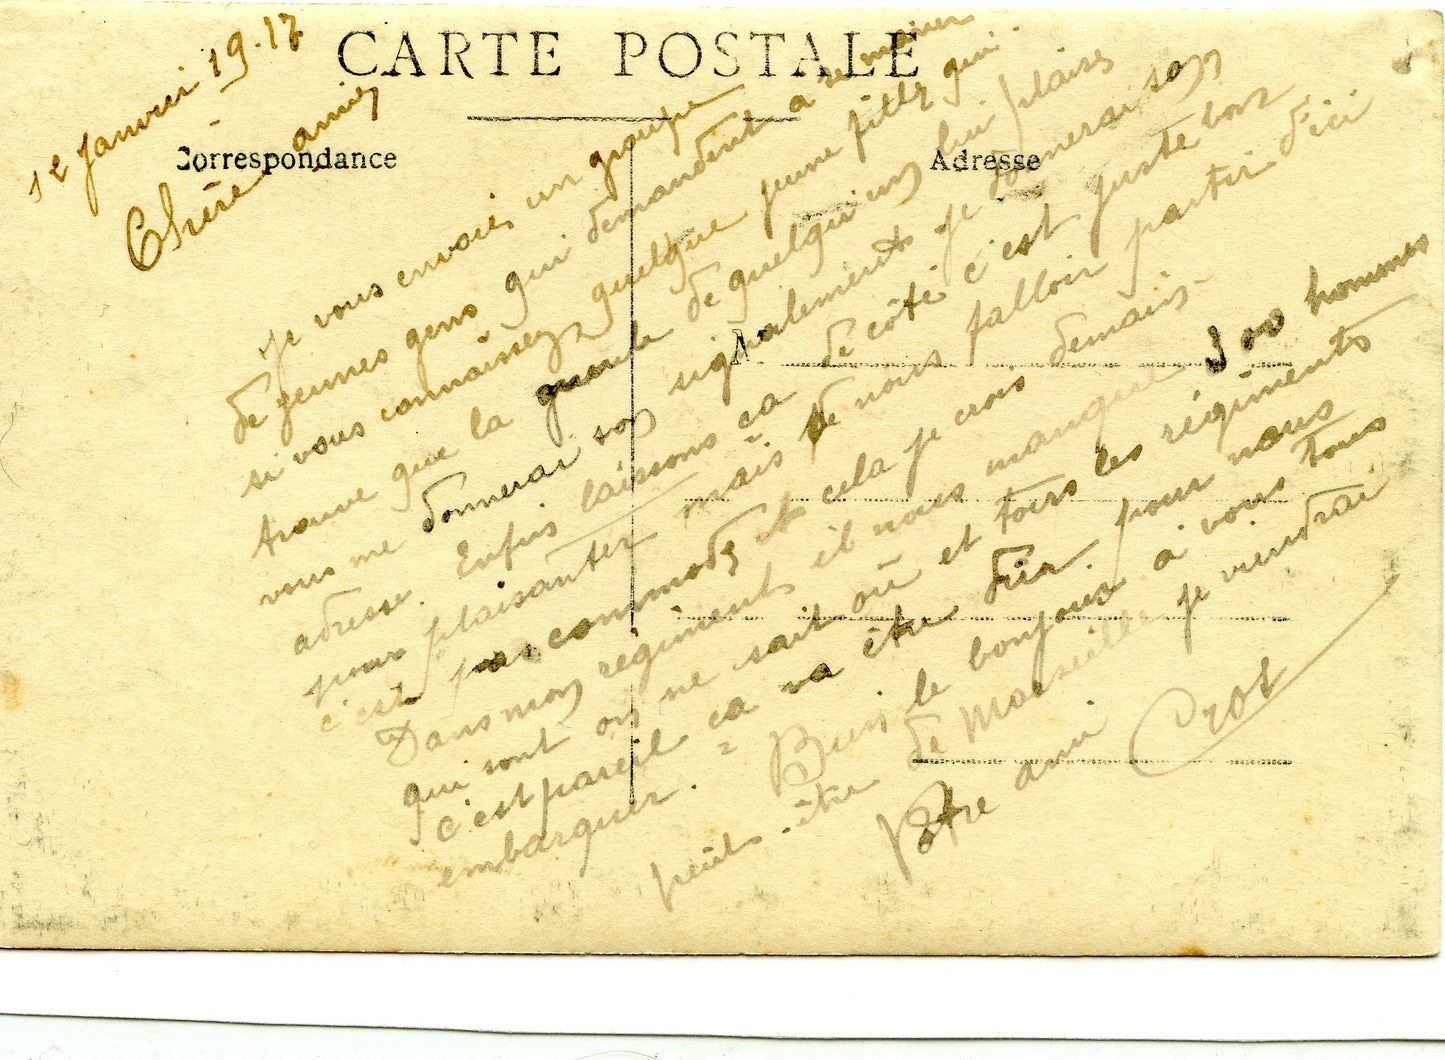 CARTE POSTALE
Correspondance
Adresse
1e Janvier 1917
Chère amie
Je vous envoie un groupe
de jeunes gens qui demandent a se marier
si vous connaissez quelque jeune fille qui
trouve que la gueule de quelqu'un lui plaise
vous me donnerai son signalement je donnerai son
adresse. Enfin laissons ca de côté c'est juste bon
pour plaisanter mais de nous falloir partir d'ici
c'est pas commode et cela je crois demain -
Dans mon régiments il nous manque 300 hommes
qui sont on ne sait où et tous les régiments
c'est pareil ca va être dur pour nous
embarquer. = Bien le bonjour a vous tous
peut-être de Marseille je viendrai
Votre ami Crot